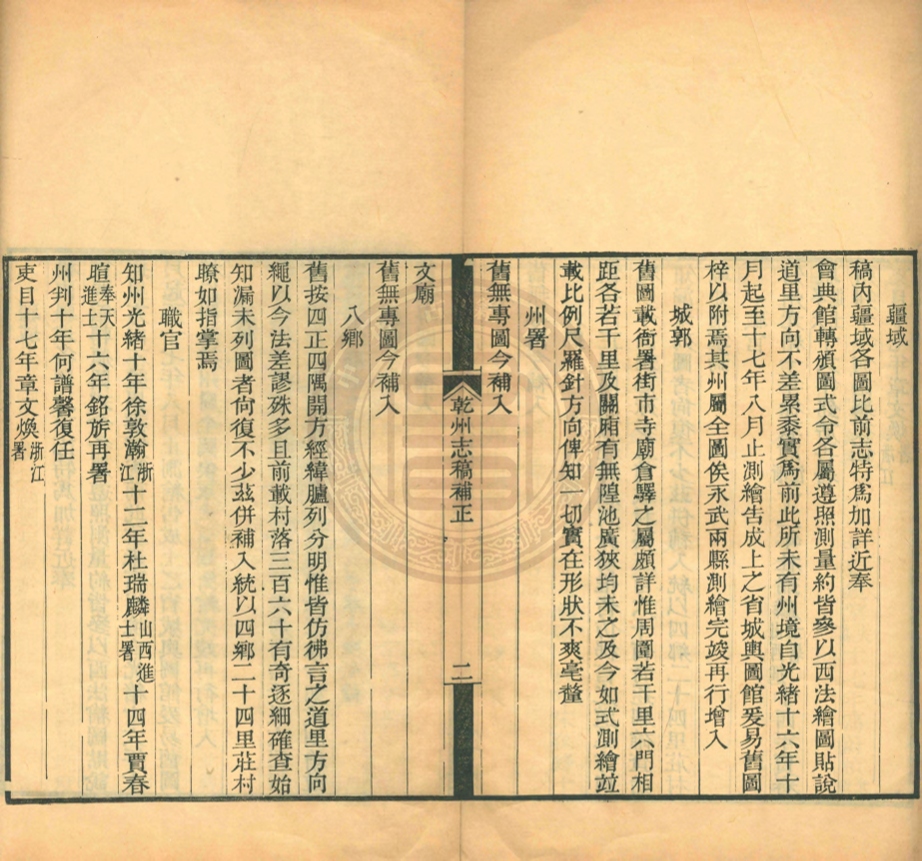 疆域
稿內疆域各圖比前志特爲加詳近奉
會典館轉頒圖式令各屬遵照測量約皆參以西法繪圖貼說
道里方向不差累黍實爲前此所未有州境自光緒十六年十
月起至十七年八月止測繪告成上之省城輿圖館爰易舊圖
梓以附焉其州屬全圖俟永武兩縣測繪完竣再行增入
城郭
舊圖載衙署街市寺廟倉驛之屬頗詳惟周圍若干里六門相
距各若干里及關廂有無隍池廣狹均未之及今如式測繪竝
載比例尺羅針方向俾知一切實在形狀不爽毫釐
州署
舊無專圖今補入
乾州志稿補正
二
文廟
舊無專圖今補入
八鄉
舊按四正四隅開方經緯臚列分明惟皆仿彿言之道里方向
繩以今法差謬殊多且前載村落三百六十有奇逐細確查始
知漏未列圖者尙復不少茲併補入統以四鄉二十四里莊村
瞭如指掌焉
職官
知州光緒十年徐敦瀚浙江十二年杜瑞麟山西進士署十四年賈春
暄奉天進士十六年銘旂再署
州判十年何譜馨復任
吏目十七年章文煥浙江署